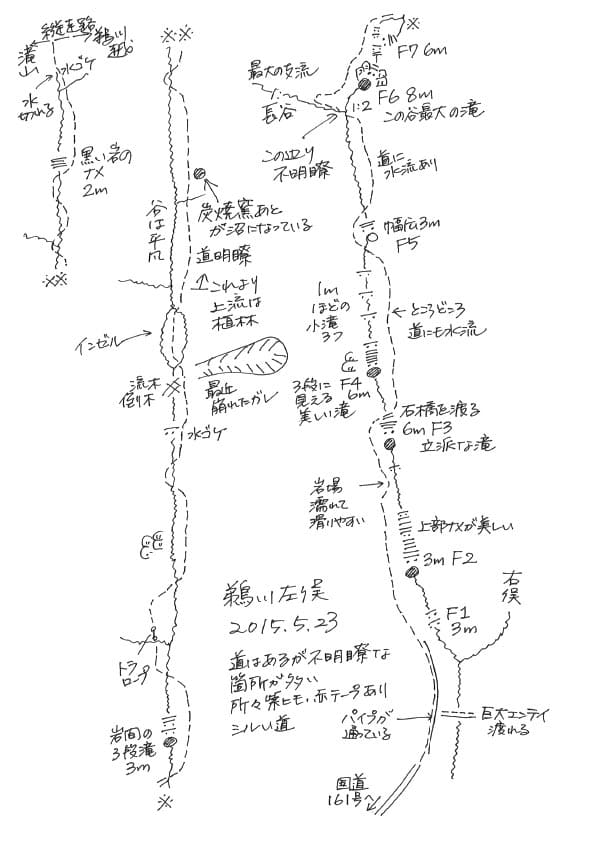 縦走路
鵜川越
滝山
水ゴケ
水
切れる
黒い岩の
ナメ
2m
※※
※※
炭焼窯あと
が沼になっている
谷は平凡
道明瞭
これより
上流は
植林
インゼル
流木
倒木
最近
崩れたガレ
水ゴケ
トラ
ロープ
岩間の
3段滝
3m
※
※
F7 6m
最大の支流
長谷
1:2
F6 8m
この谷最大の滝
この辺り
不明瞭
道に
水流あり
幅広3m
F5
1m
ほどの
小滝
3つ
ところどころ
道にも水流
3段に
見える
美しい滝
F4
6m
石橋を渡る
6m F3
立派な滝
岩場
濡れて
滑りやすい
上部ナメが美しい
3m F2
右俣
F1
3m
鵜川左俣
2015.5.23
道はあるが不明瞭な
箇所が多い
所々紫ヒモ・赤テープあり
シルい道
パイプが
通っている
巨大エンテイ
渡れる
国道
161号へ